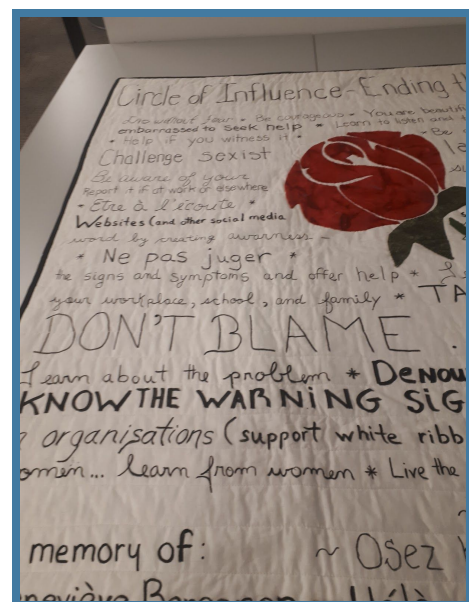 Circle of Influence - Ending t
Be courageous * You are beautif
embarrassed to seek help * Learn to listen and
* Help if you witness it * Be
Challenge sexist
Be aware of your
Report it if at work or elsewhere
* Être à l'écoute *
Websites (and other social media
word by creating awareness -
* Ne pas juger *
the signs and symptoms and offer help *
your workplace, school, and family * TA
DON'T BLAME .
Learn about the problem * DENOU
KNOW THE WARNING SIG
organisations (support white ribb
omen... learn from women * Live the
memory of: ~ Osez
neviève Bergeron Hélè